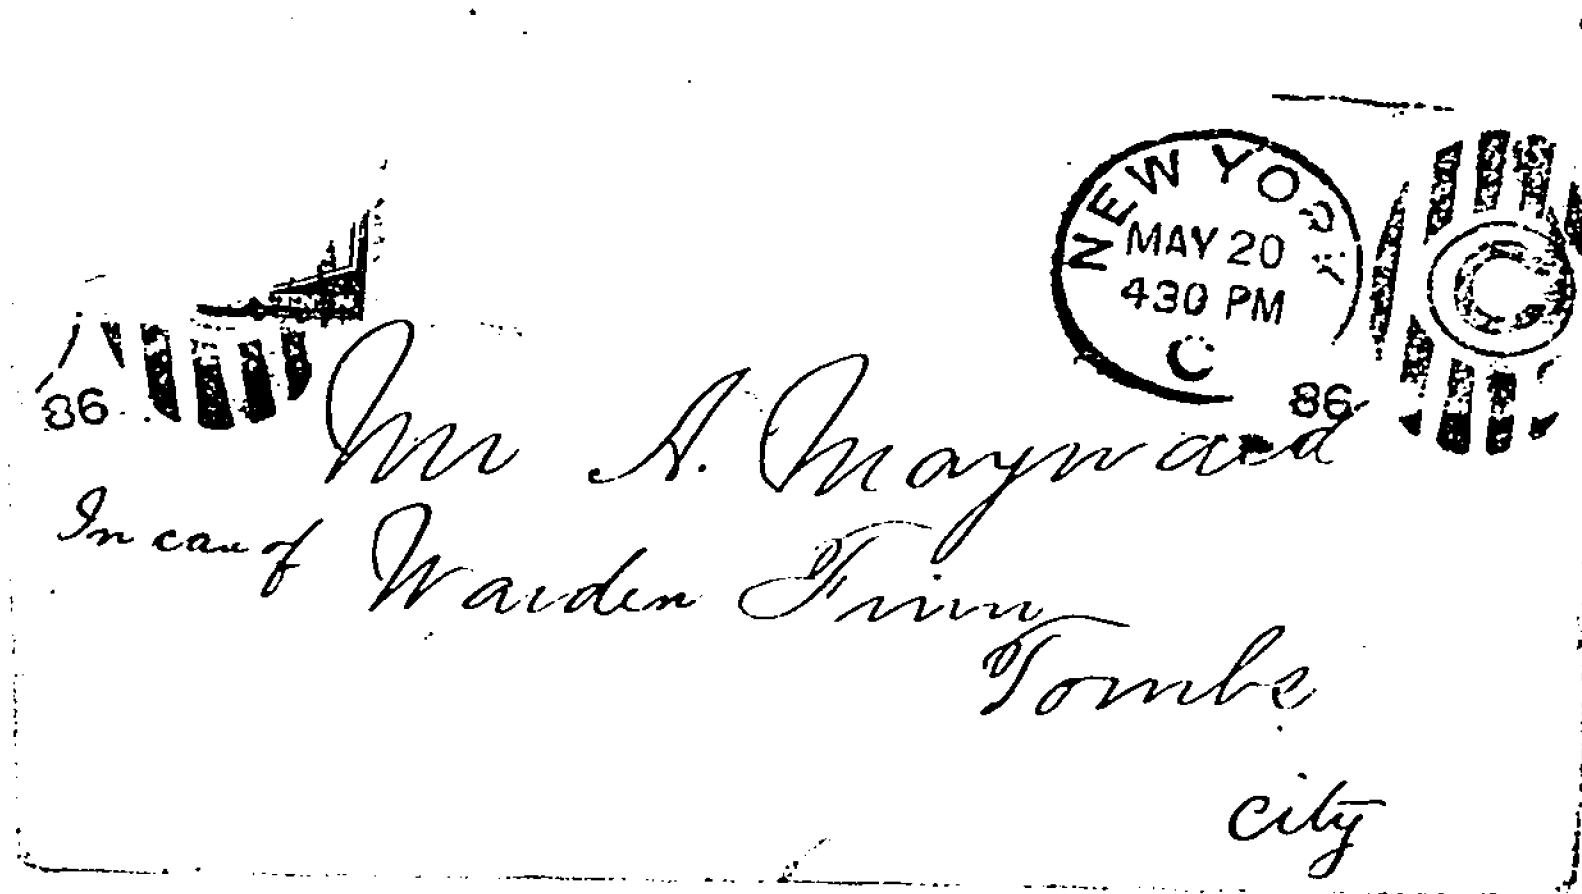 NEW YORK
MAY 20
430 PM
C
86
C
86
Mr A. Maynard
In care of Warden Finn
Tombs
city